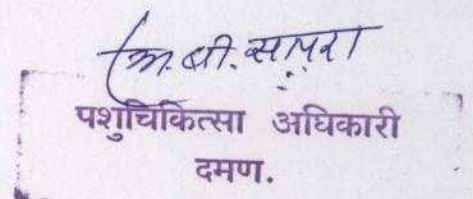 बी. सापरा
पशुचिकित्सा अधिकारी
दमण.